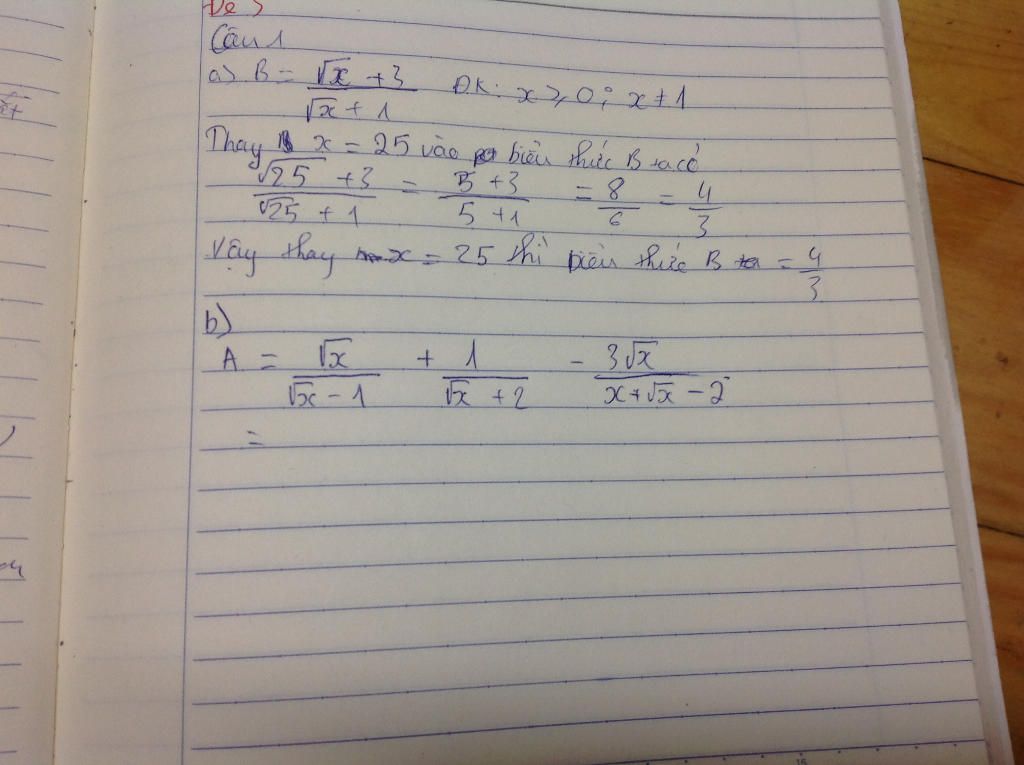 Đề 3
Câu 1
a) B = (√x + 3)/(√x + 1) ĐK: x ⩾ 0; x ≠ 1
Thay x = 25 vào biểu thức B ta có
(√25 + 3)/(√25 + 1) = (5 + 3)/(5 + 1) = 8/6 = 4/3
Vậy thay x = 25 thì biểu thức B = 4/3
b)
A = √x/(√x - 1) + 1/(√x + 2) - 3√x/(x + √x - 2)
=